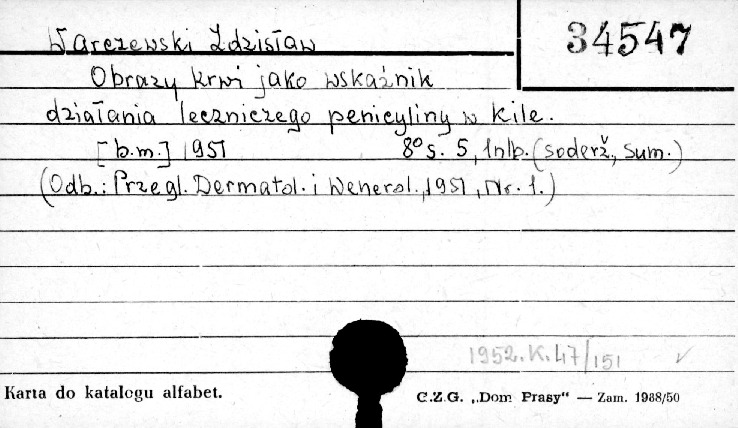 Warczewski Zdzisław
34547
Obrazy krwi jako wskaźnik
działania leczniczego penicyliny w kile.
[b.m.] 1951 8° s. 5, 1nlb. (soderž., sum.)
(Odb.: Przegl. Dermatol. i Wenerol., 1951, Nr. 1.)
1952.K.47/151 ✓
Karta do katalogu alfabet.
C.Z.G. „Dom Prasy“ — Zam. 1988/50